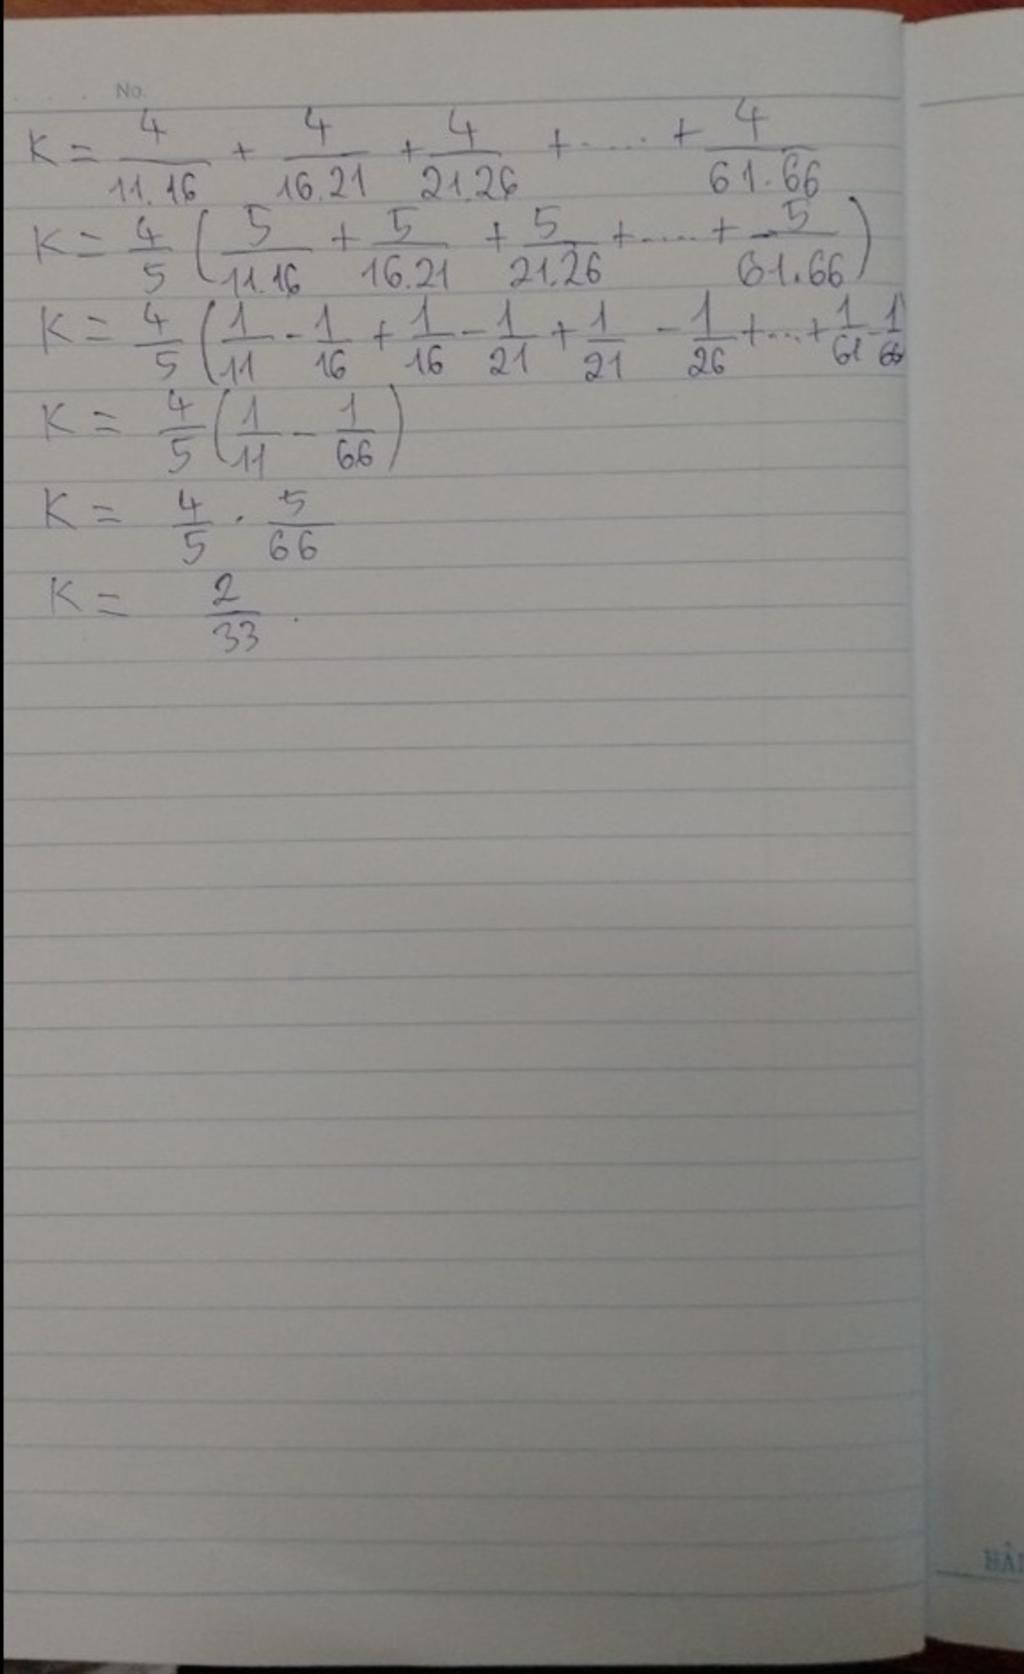 No.
K = 4/11.16 + 4/16.21 + 4/21.26 + ..... + 4/61.66
K = 4/5 (5/11.16 + 5/16.21 + 5/21.26 + ..... + 5/61.66)
K = 4/5 (1/11 - 1/16 + 1/16 - 1/21 + 1/21 - 1/26 + ... + 1/61 - 1/66
K = 4/5 (1/11 - 1/66)
K = 4/5 . 5/66
K = 2/33.